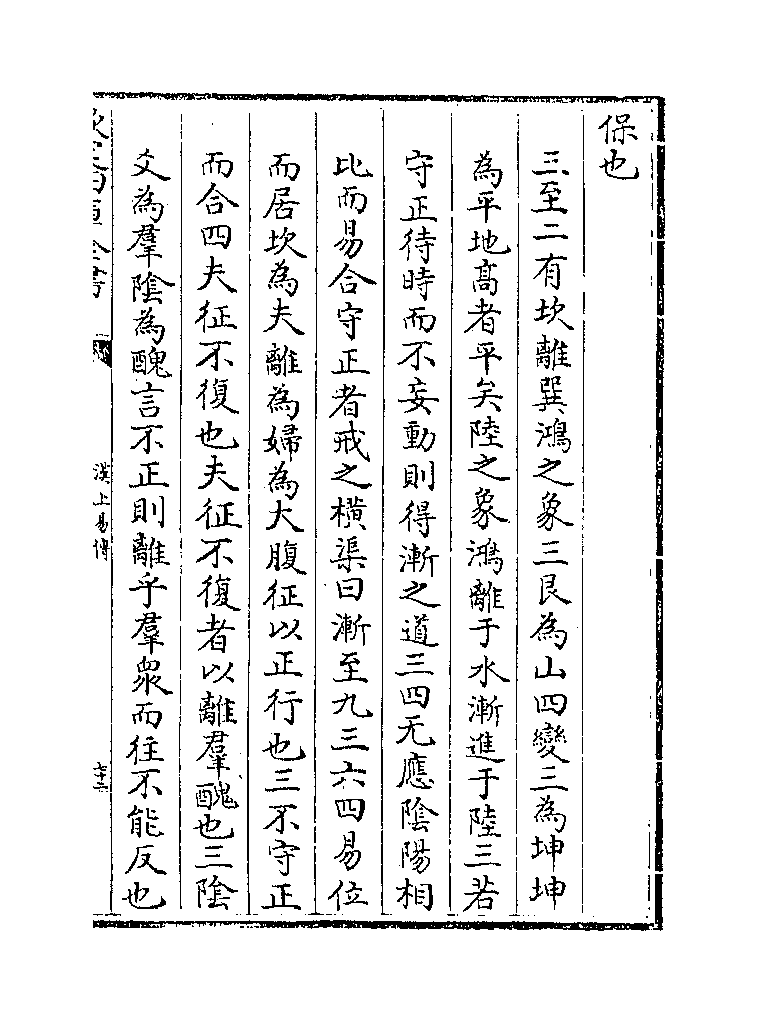 保也
三至二有坎離巽鴻之象三艮為山四變三為坤坤
為平地高者平矣陸之象鴻離于水漸進于陸三若
守正待時而不妄動則得漸之道三四无應陰陽相
比而易合守正者戒之横渠曰漸至九三六四易位
而居坎為夫離為婦為大腹征以正行也三不守正
而合四夫征不復也夫征不復者以離羣醜也三陰
爻為羣陰為醜言不正則離乎羣衆而往不能反也
欽定四庫全書
漢上易傳